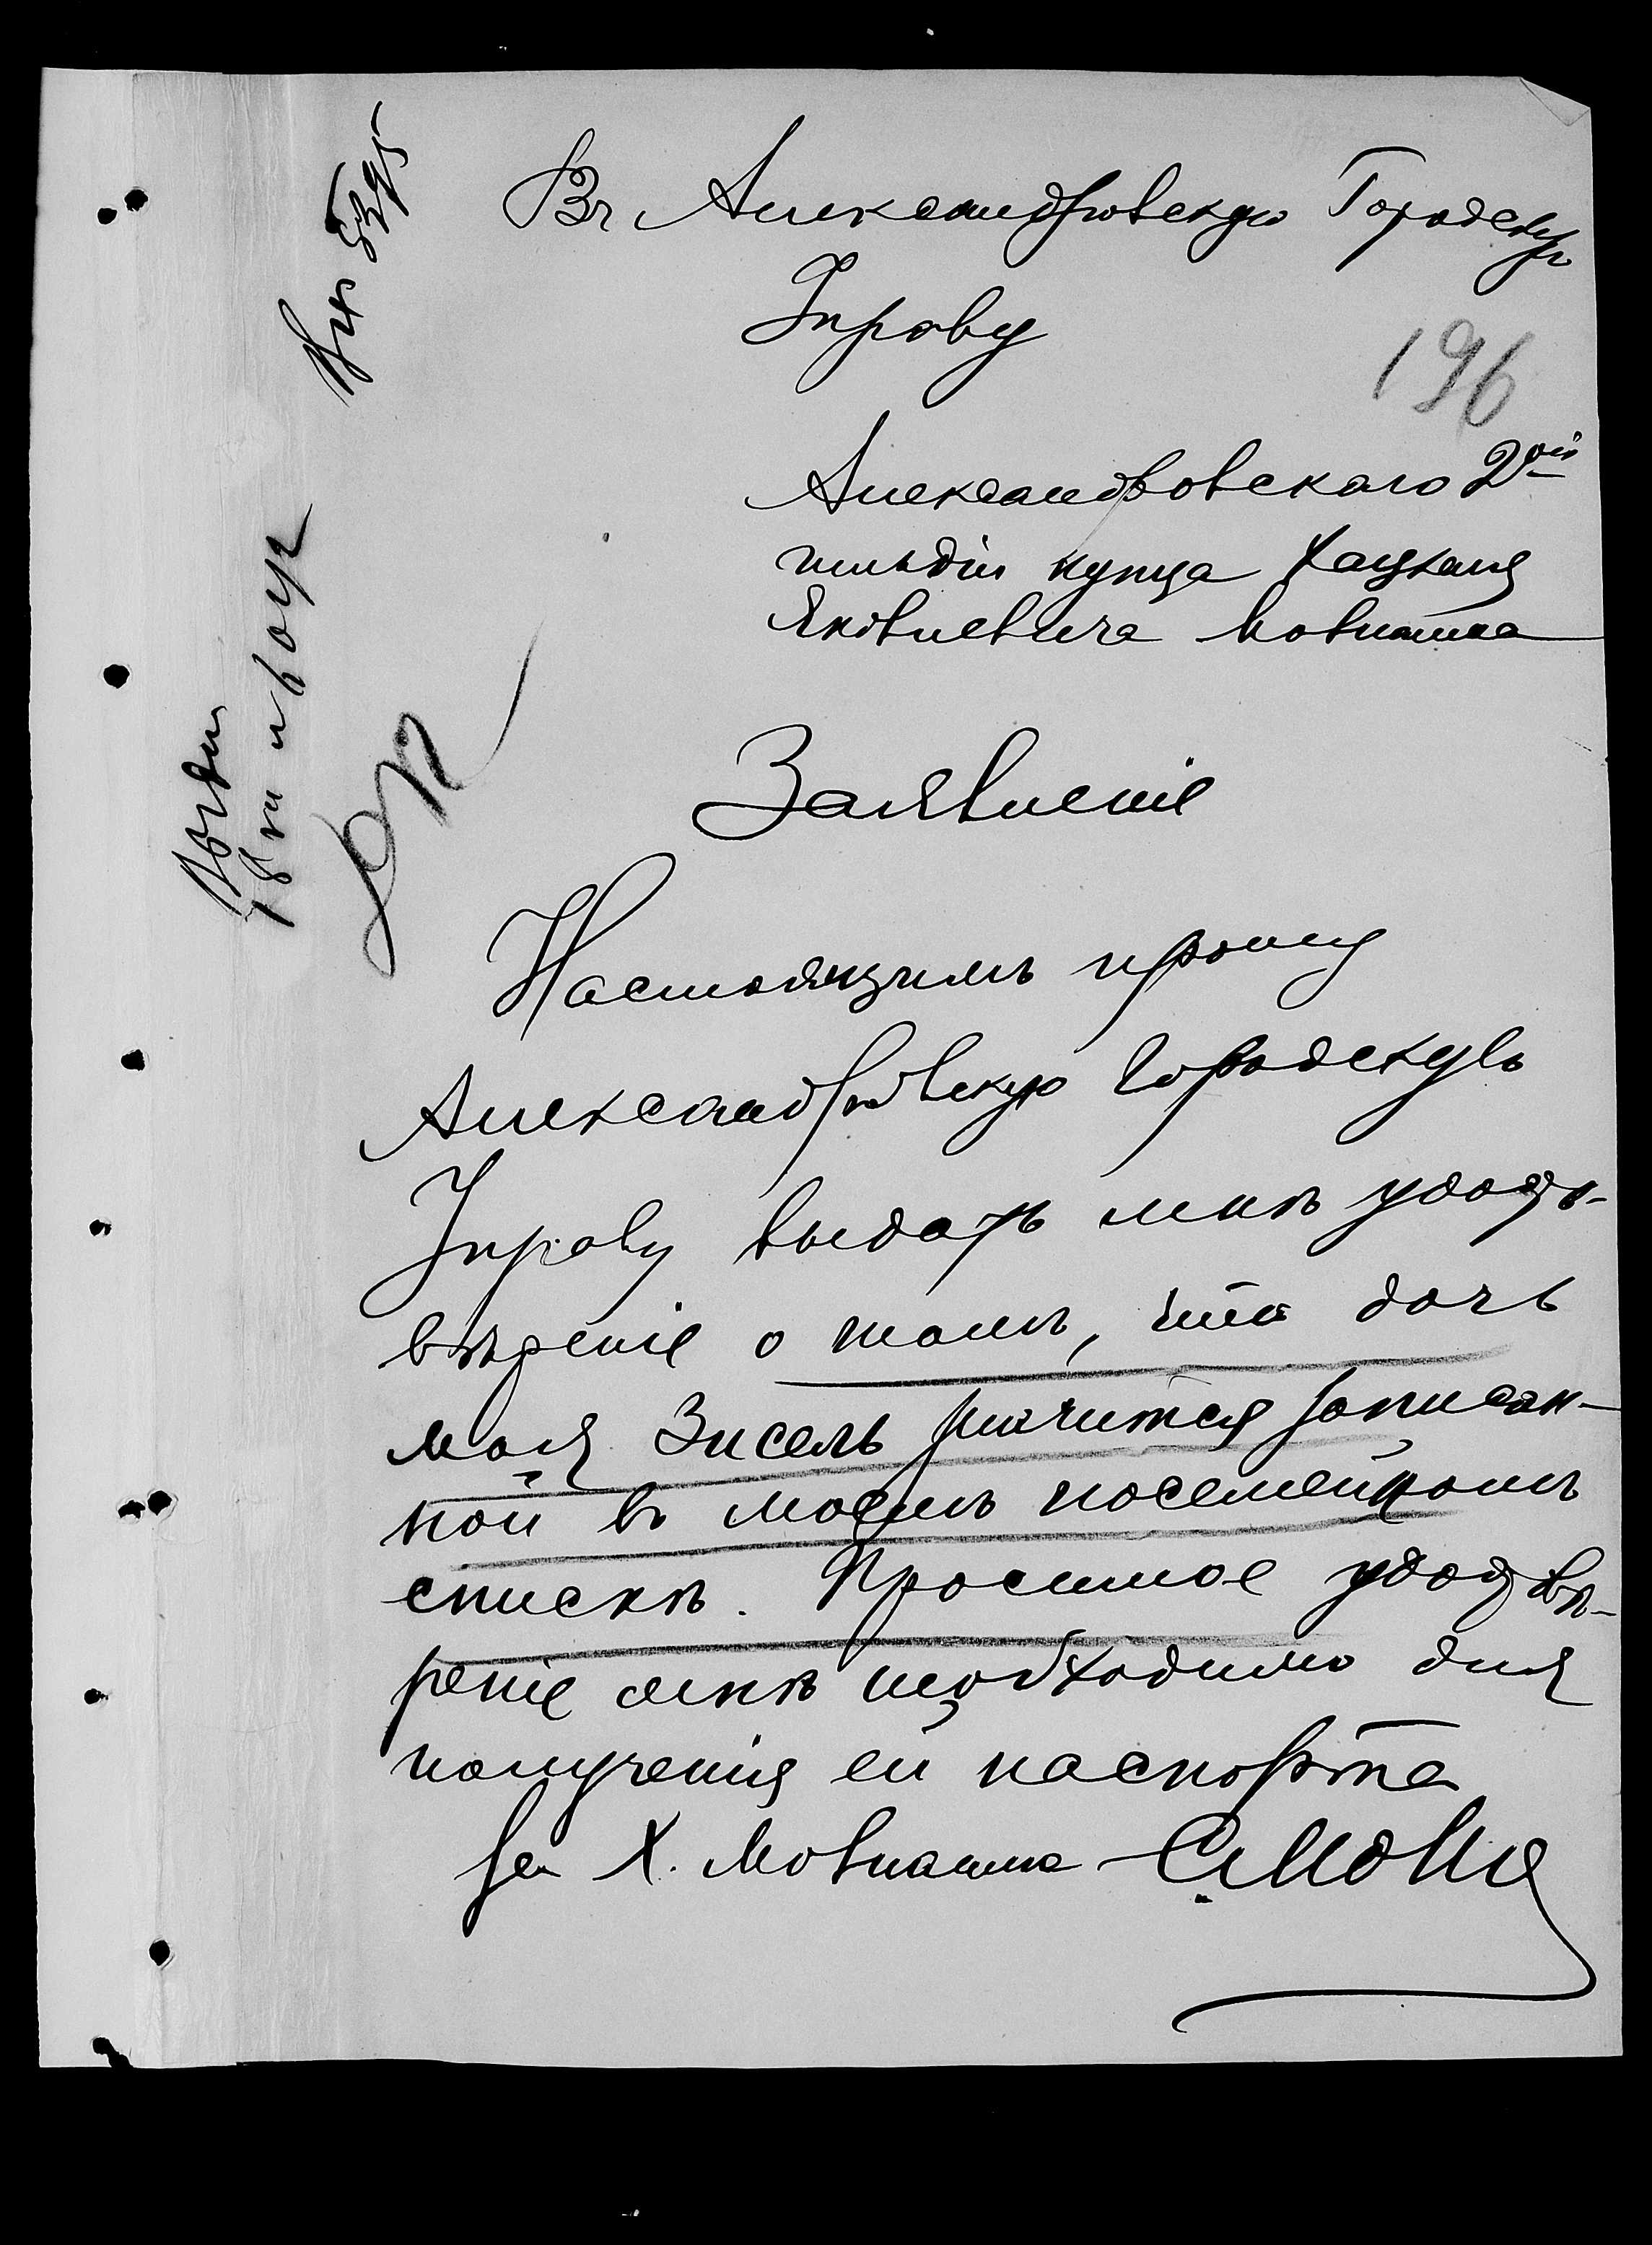 Въ Александровскую Городскую
Управу
196
Александровскаго 2ой
гильдіи купца Хацкеля
Яковлевича Мовшица
Заявленіе
Настоящимъ прошу
Александровскую Городскую
Управу выдать мнѣ удосто-
вѣреніе о томъ, что дочь
моя Зисель значится записан-
ной въ моемъ посемейномъ
спискѣ. Просимое удостовѣ-
реніе мнѣ необходимо для
полученія ей паспорта
За Х.